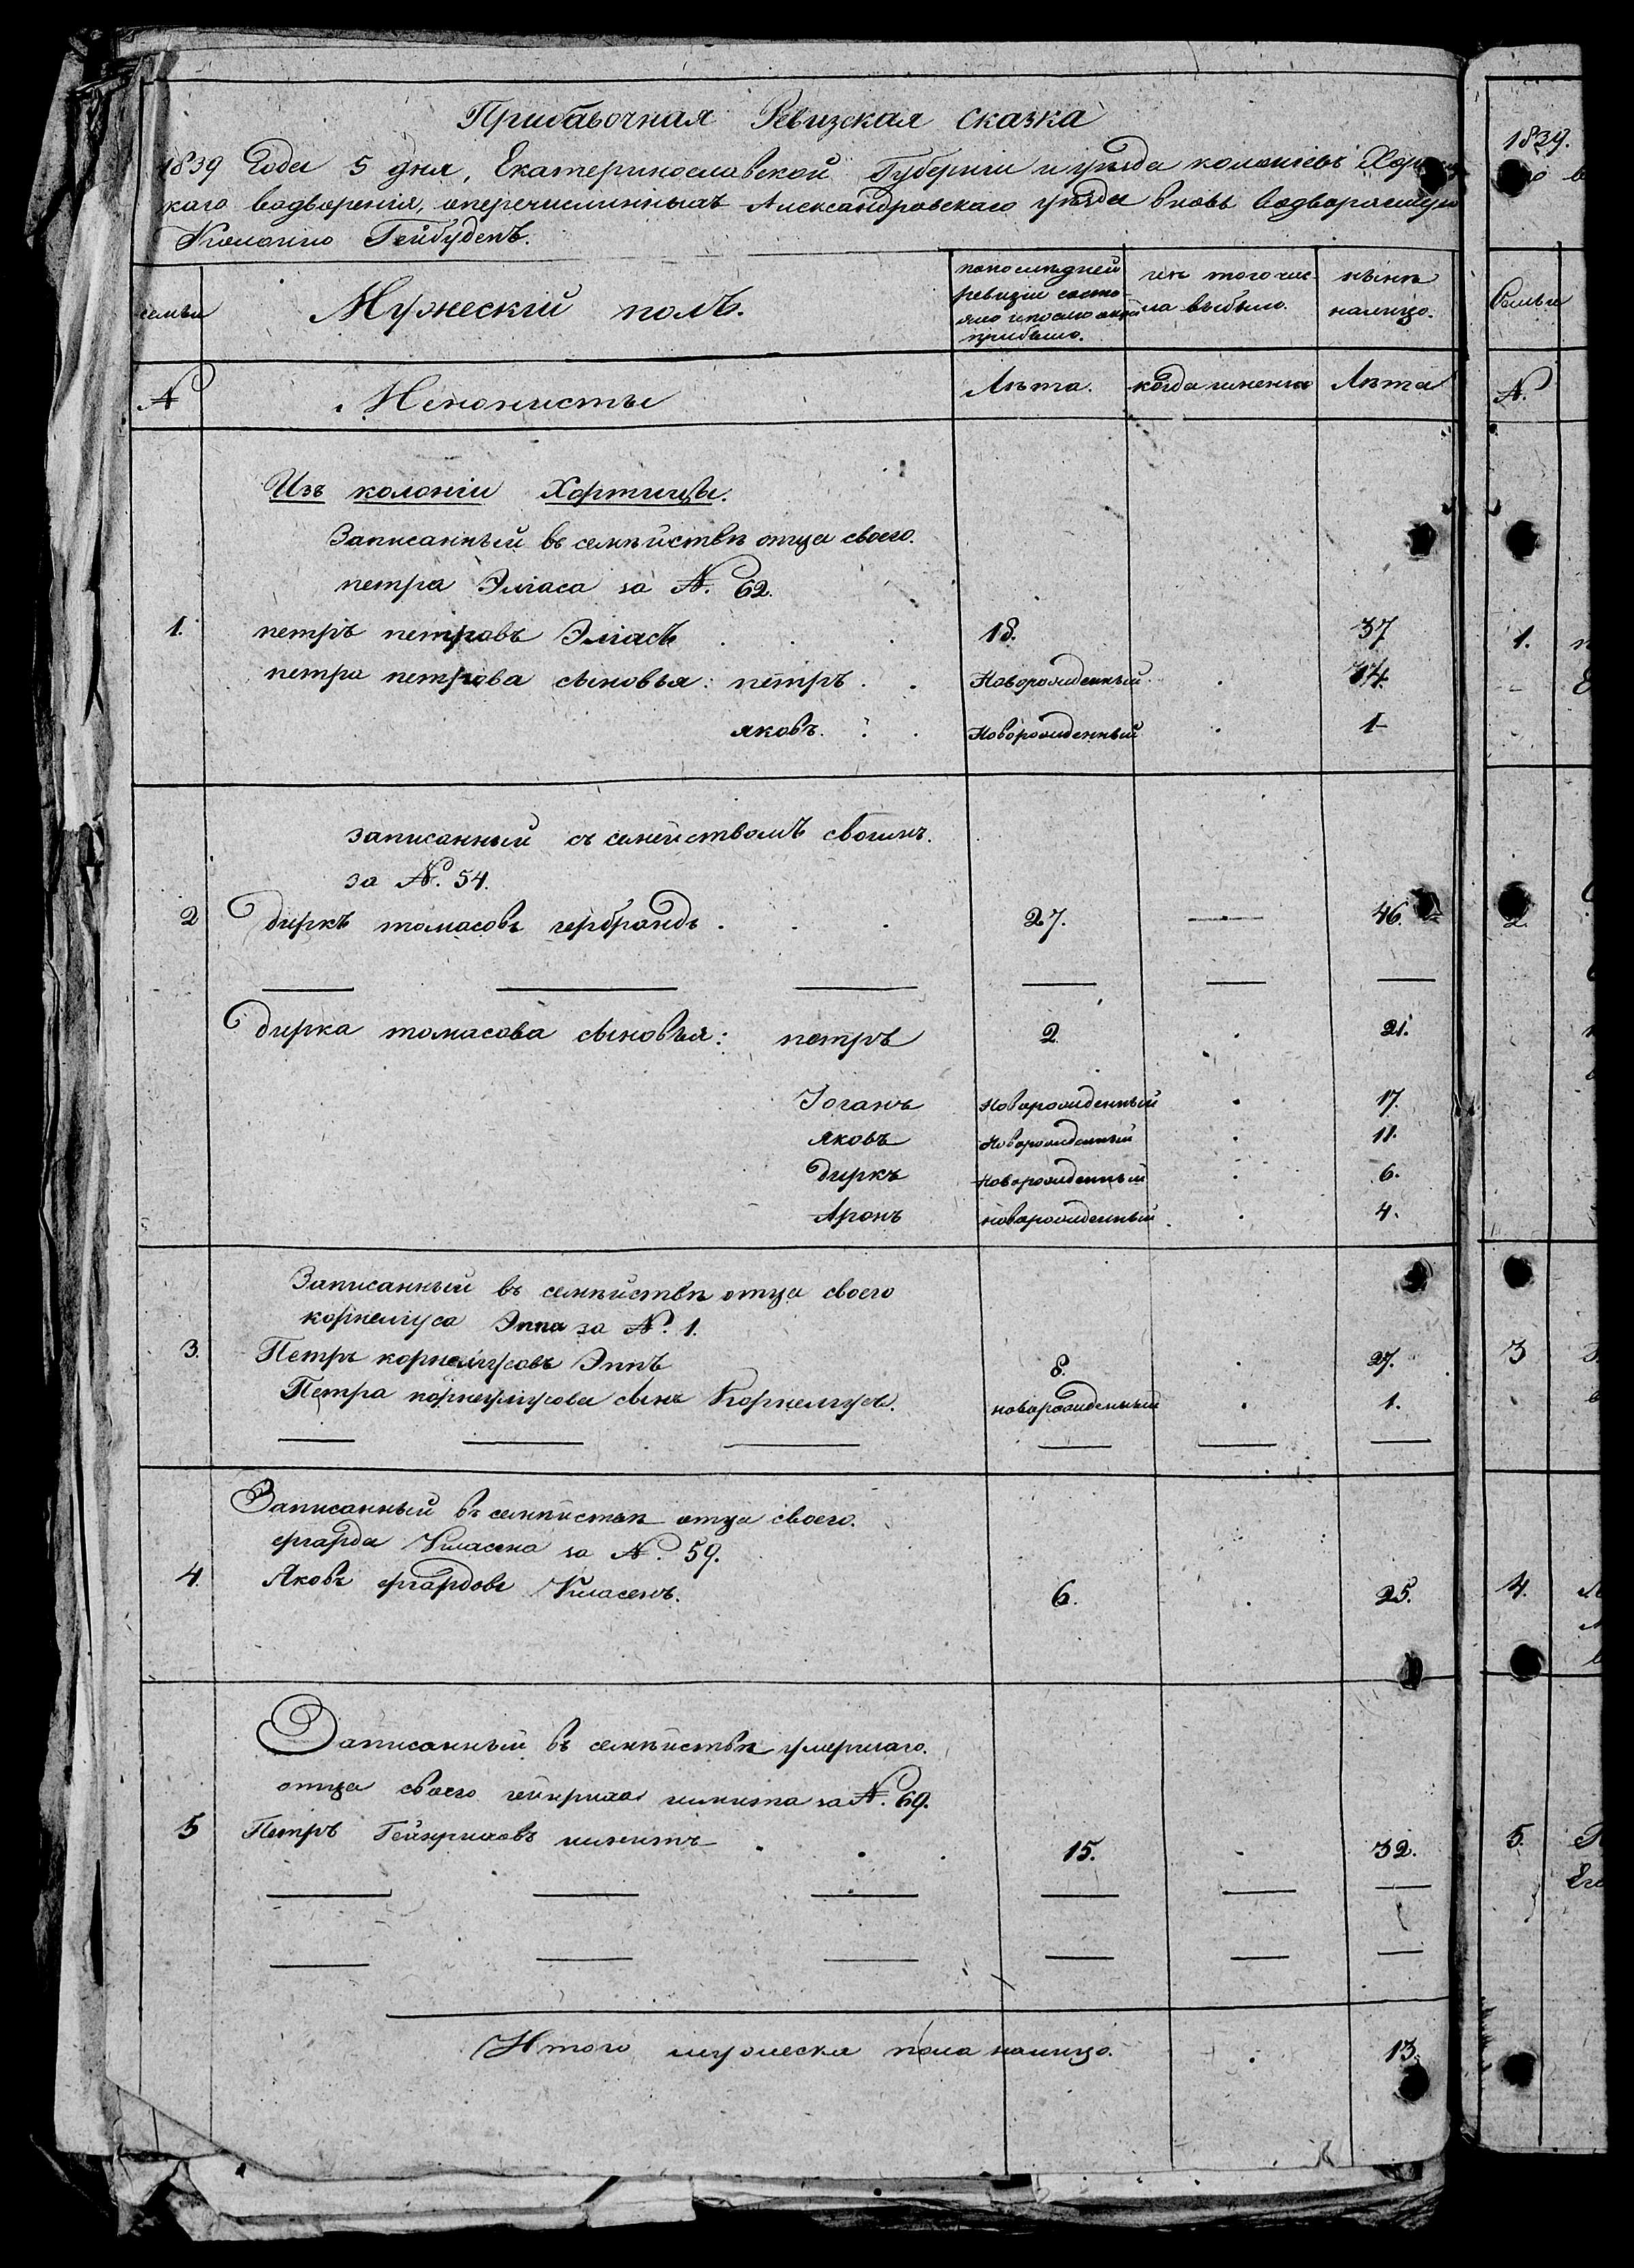 Прибавочная Ревизская сказка
1839 Года 5 дня, Екатеринославской Губерніи и уѣзда колоніевъ Хор
каго водворенія, оперечисленныхъ Александровскаго уѣзда вновь водворяемую
Колонію Гейбуденъ.
семьи
Мужескій полъ.
попоследней
ревизіи состо-
яло ипослѣ оной
прибыло.
изъ того чис-
ла выбыло.
нынѣ
налицо.
№
Менонисты
Лѣта.
когда именно
Лѣта
Изъ колоніи Хортицы.
Записанный въ семѣйствѣ отца своего.
петра Эліаса за №. 62.
1. петръ петровъ Эліасъ . . 18. 37
петра петрова сыновья: петръ . . Новорожденный . 14.
яковъ. . . Новорожденный . 1
записанный съ семействомъ своимъ.
за №. 54.
2 диркъ томасовъ гербрандъ . . . 27. — 46.
дирка томасова сыновья: петръ 2. . 21.
Іоганъ Новорожденный . 17.
яковъ Новорожденный . 11.
диркъ Новорожденный . 6.
Аронъ новорожденный . 4.
Записанный въ семѣйствѣ отца своего
корнелиуса Эппа за №. 1.
3. Петръ корнелиусовъ Эппъ 8. . 27.
Петра корнелиусова сынъ Корнелиусъ. новорожденный . 1.
Записанный въ семѣйствѣ отца своего.
ергарда Класена за №. 59.
4. Яковъ ергардовъ Класенъ. 6. . 25.
Записанный въ семѣйствѣ умершаго.
отца своего гейнриха за №. 69.
5 Петръ Гейнриховъ . . . 15. . 32.
Итого мужеска пола налицо. . 13.
1839.
Семьи
№.
1.
2.
3
4.
5.